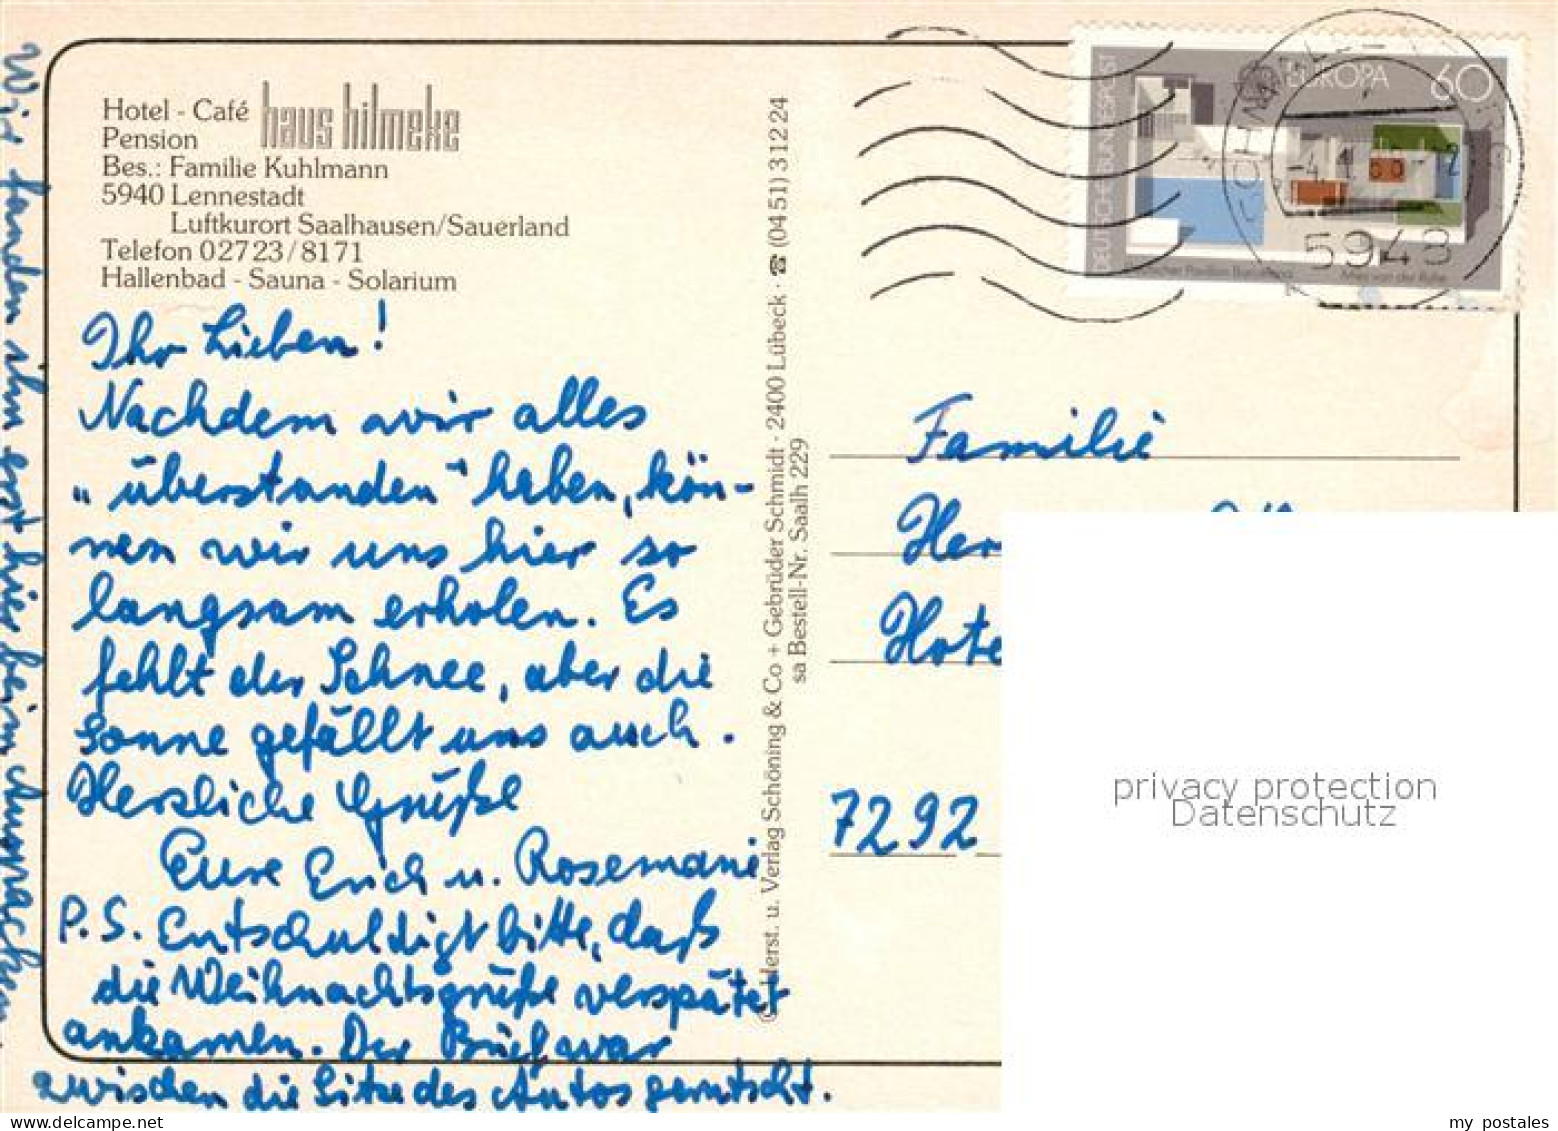 Hotel - Café haus hilmeke
Pension
Bes.: Familie Kuhlmann
5940 Lennestadt
Luftkurort Saalhausen/Sauerland
Telefon 02723/8171
Hallenbad - Sauna - Solarium
Ihr Lieben!
Nachdem wir alles
„überstanden" haben, kön-
nen wir uns hier so
langsam erholen. Es
fehlt der Schnee, aber die
Sonne gefällt uns auch.
Herzliche Grüße
Eure Erich u. Rosemarie
P.S. Entschuldigt bitte, daß
die Weihnachtsgrüße verspätet
ankamen. Der Brief war
zwischen die Sitze des Autos gerutscht.
Wir fanden ihn erst hier beim
© Herst. u. Verlag Schöning & Co + Gebrüder Schmidt · 2400 Lübeck · ☎ (0451) 31224
sa Bestell-Nr. Saalh 229
DEUTSCHE BUNDESPOST
EUROPA 60
Pavillon Barcelona
Mies van der Rohe
5943
Familie
Her
Hote
7292
privacy protection
Datenschutz
my postales